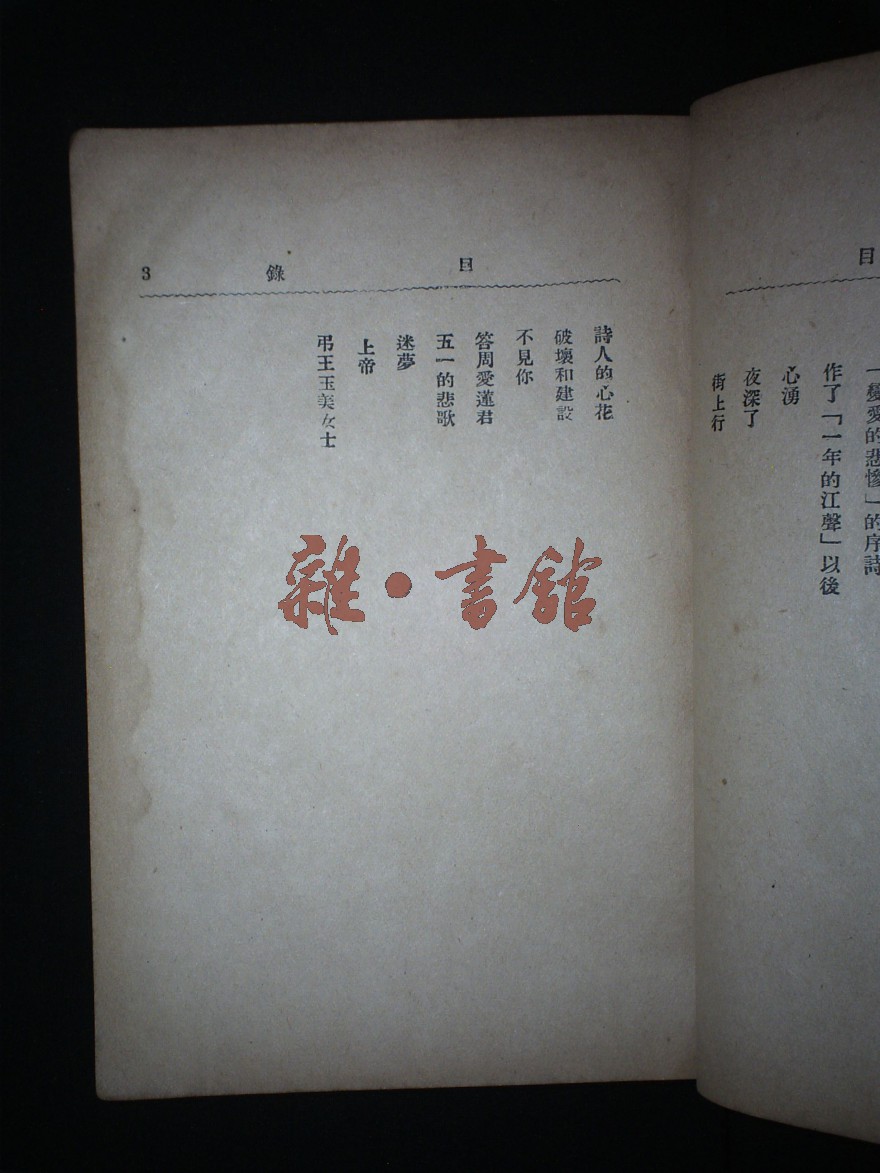 目
「變愛的悲慘」的序詩
作了「一年的江聲」以後
心湧
夜深了
街上行
目錄 3
詩人的心花
破壞和建設
不見你
答周愛蓮君
五一的悲歌
迷夢
上帝
弔王玉美女士
雜·書館